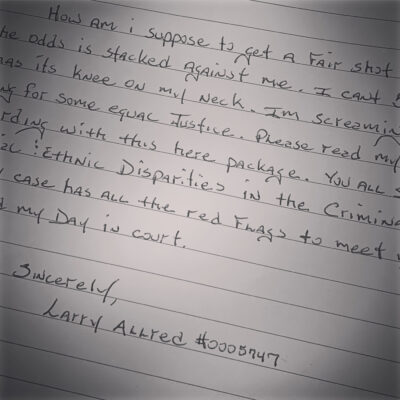 How am i suppose to get a Fair shot
he odds is stacked Against me. I can't
has its knee on my Neck. Im screaming
ng for some equal Justice. Please read my
rding with this here package. You all
ic : Ethnic Disparities in the Crimina
case has all the red Flags to meet
my Day in court.
Sincerely,
Larry Allred #0005747